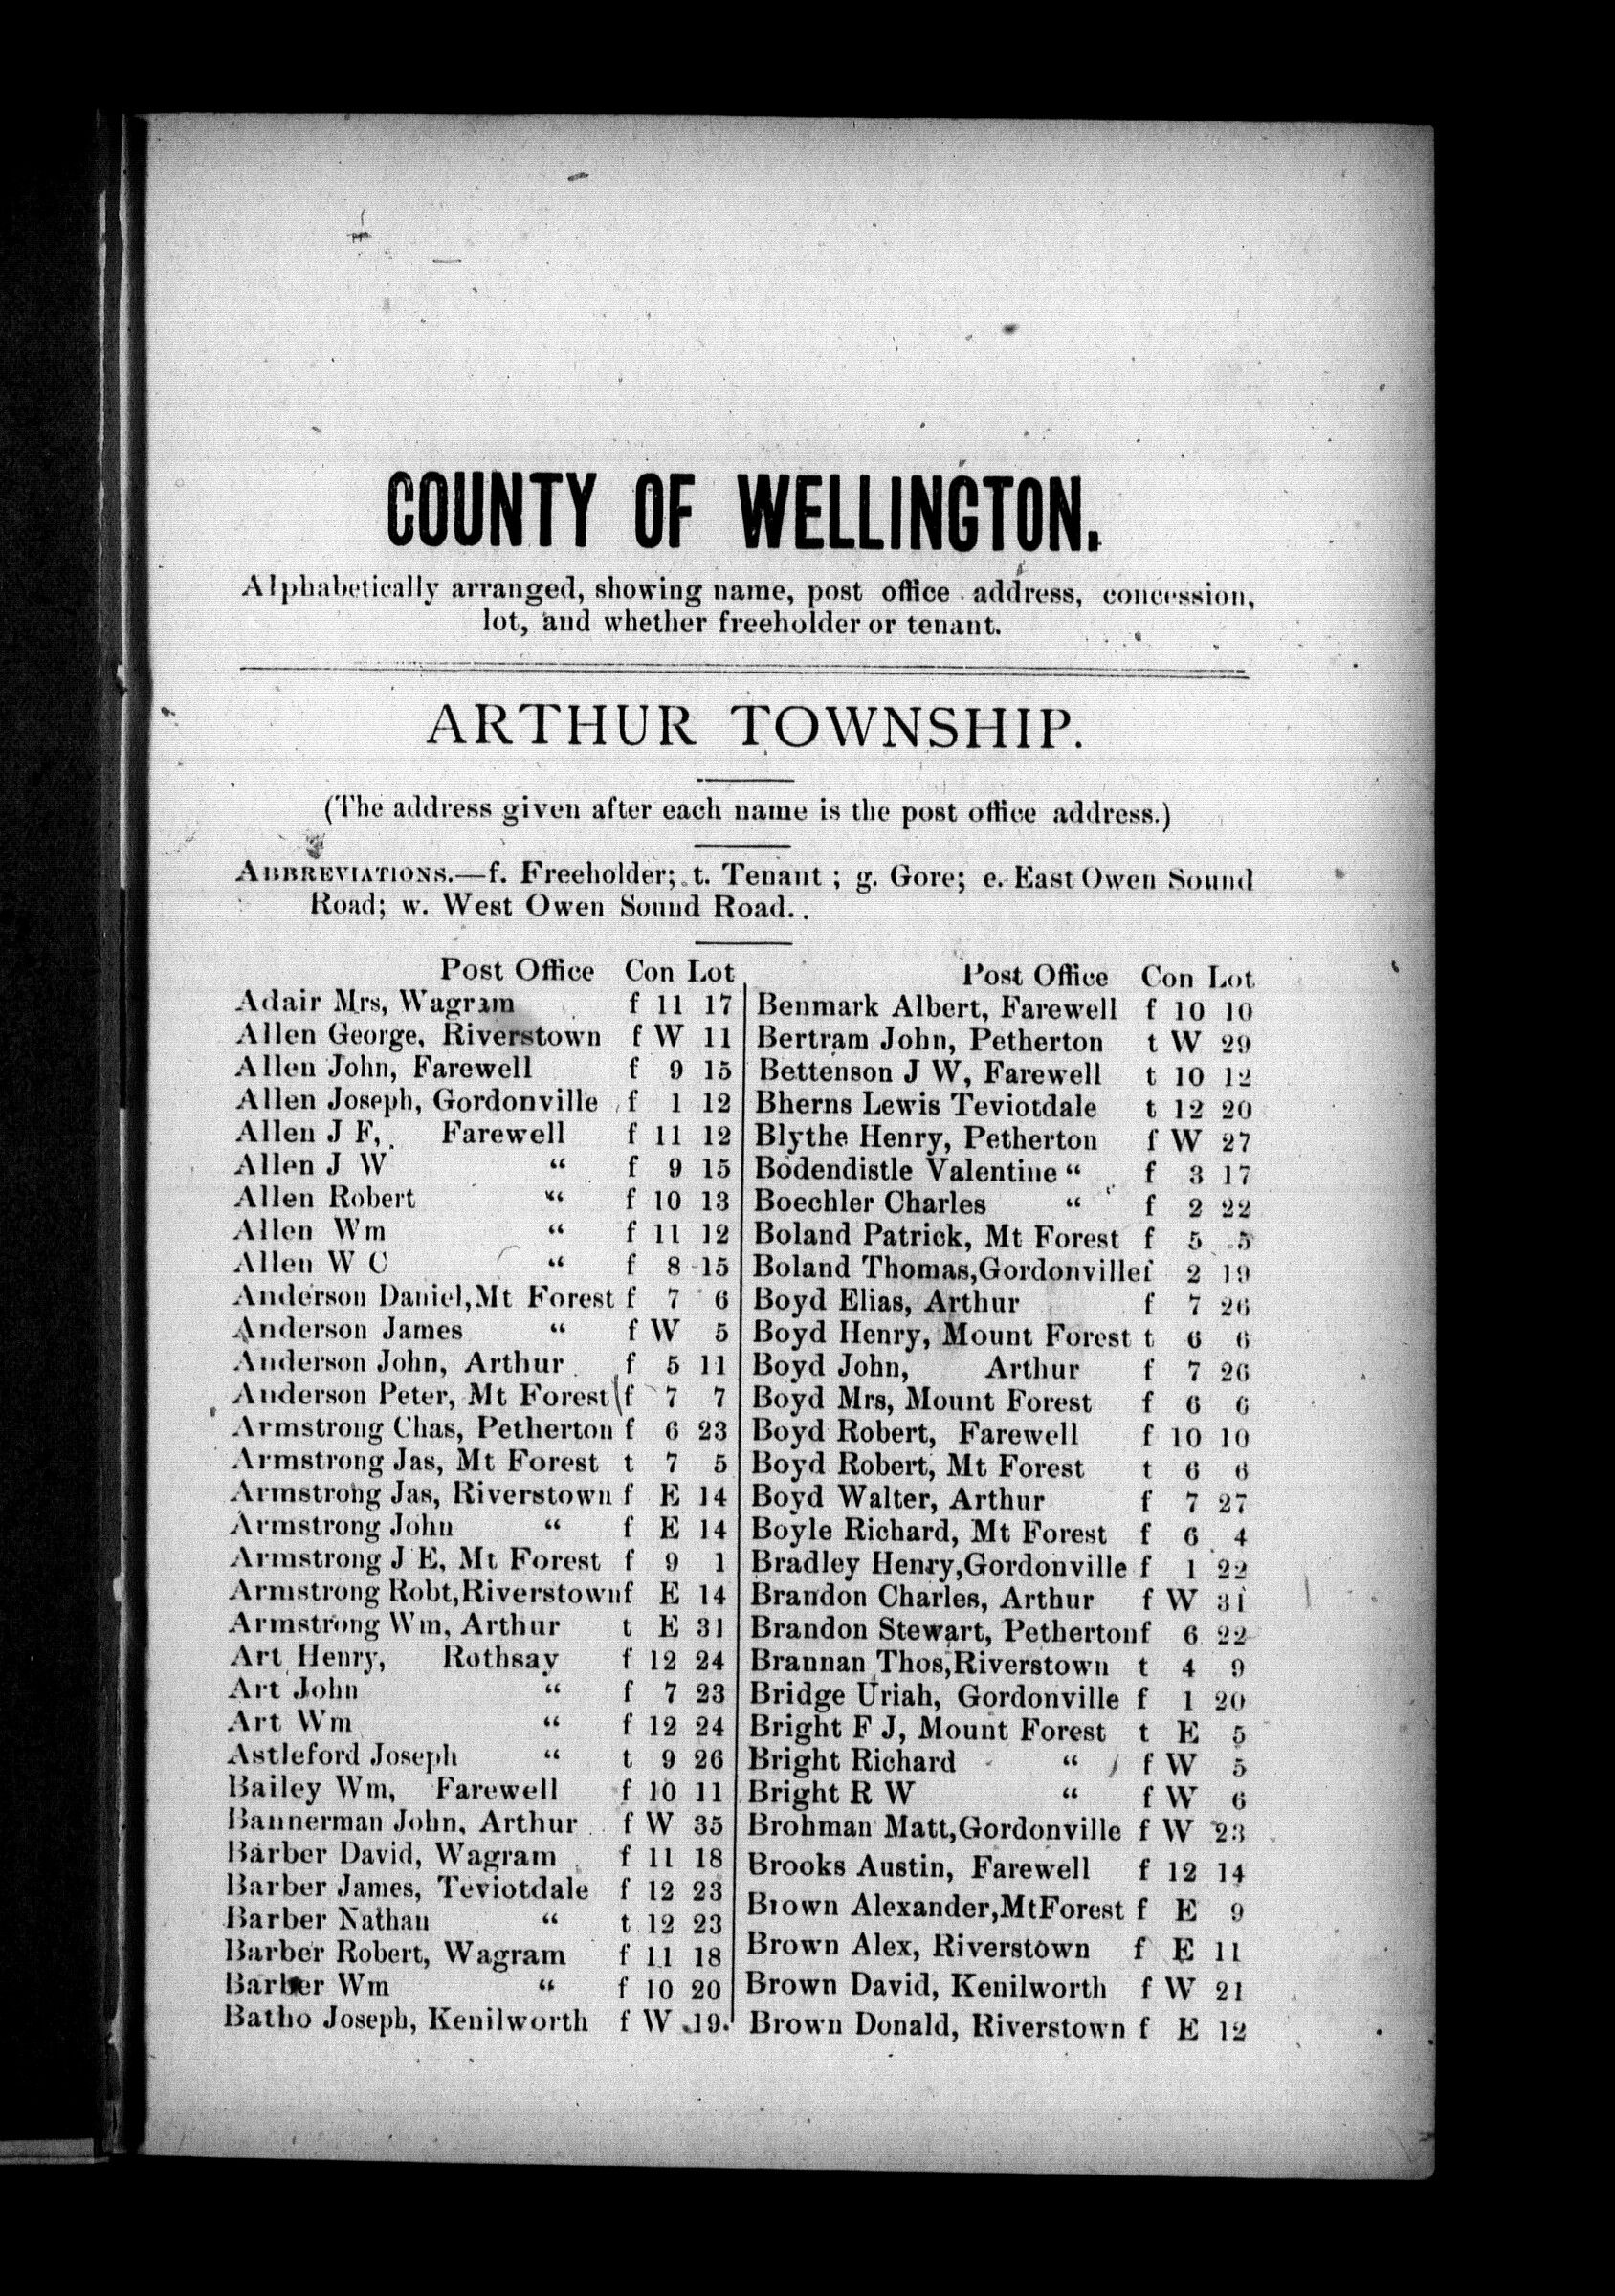 COUNTY OF WELLINGTON.
Alphabetically arranged, showing name, post office address, concession,
lot, and whether freeholder or tenant.
ARTHUR TOWNSHIP.
(The address given after each name is the post office address.)
ABBREVIATIONS.—f. Freeholder; t. Tenant ; g. Gore; e. East Owen Sound
Road; w. West Owen Sound Road.
Post Office Con Lot
Adair Mrs, Wagram f 11 17
Allen George, Riverstown f W 11
Allen John, Farewell f 9 15
Allen Joseph, Gordonville f 1 12
Allen J F, Farewell f 11 12
Allen J W “ f 9 15
Allen Robert “ f 10 13
Allen Wm “ f 11 12
Allen W C “ f 8 15
Anderson Daniel,Mt Forest f 7 6
Anderson James “ f W 5
Anderson John, Arthur f 5 11
Anderson Peter, Mt Forest f 7 7
Armstrong Chas, Petherton f 6 23
Armstrong Jas, Mt Forest t 7 5
Armstrong Jas, Riverstown f E 14
Armstrong John “ f E 14
Armstrong J E, Mt Forest f 9 1
Armstrong Robt,Riverstownf E 14
Armstrong Wm, Arthur t E 31
Art Henry, Rothsay f 12 24
Art John “ f 7 23
Art Wm “ f 12 24
Astleford Joseph “ t 9 26
Bailey Wm, Farewell f 10 11
Bannerman John, Arthur f W 35
Barber David, Wagram f 11 18
Barber James, Teviotdale f 12 23
Barber Nathan “ t 12 23
Barber Robert, Wagram f 11 18
Barber Wm “ f 10 20
Batho Joseph, Kenilworth f W 19
Post Office Con Lot
Benmark Albert, Farewell f 10 10
Bertram John, Petherton t W 29
Bettenson J W, Farewell t 10 12
Bherns Lewis Teviotdale t 12 20
Blythe Henry, Petherton f W 27
Bodendistle Valentine “ f 3 17
Boechler Charles “ f 2 22
Boland Patrick, Mt Forest f 5 5
Boland Thomas,Gordonvillef 2 19
Boyd Elias, Arthur f 7 26
Boyd Henry, Mount Forest t 6 6
Boyd John, Arthur f 7 26
Boyd Mrs, Mount Forest f 6 6
Boyd Robert, Farewell f 10 10
Boyd Robert, Mt Forest t 6 6
Boyd Walter, Arthur f 7 27
Boyle Richard, Mt Forest f 6 4
Bradley Henry,Gordonville f 1 22
Brandon Charles, Arthur f W 31
Brandon Stewart, Pethertonf 6 22
Brannan Thos,Riverstown t 4 9
Bridge Uriah, Gordonville f 1 20
Bright F J, Mount Forest t E 5
Bright Richard “ f W 5
Bright R W “ f W 6
Brohman Matt,Gordonville f W 23
Brooks Austin, Farewell f 12 14
Brown Alexander,MtForest f E 9
Brown Alex, Riverstown f E 11
Brown David, Kenilworth f W 21
Brown Donald, Riverstown f E 12